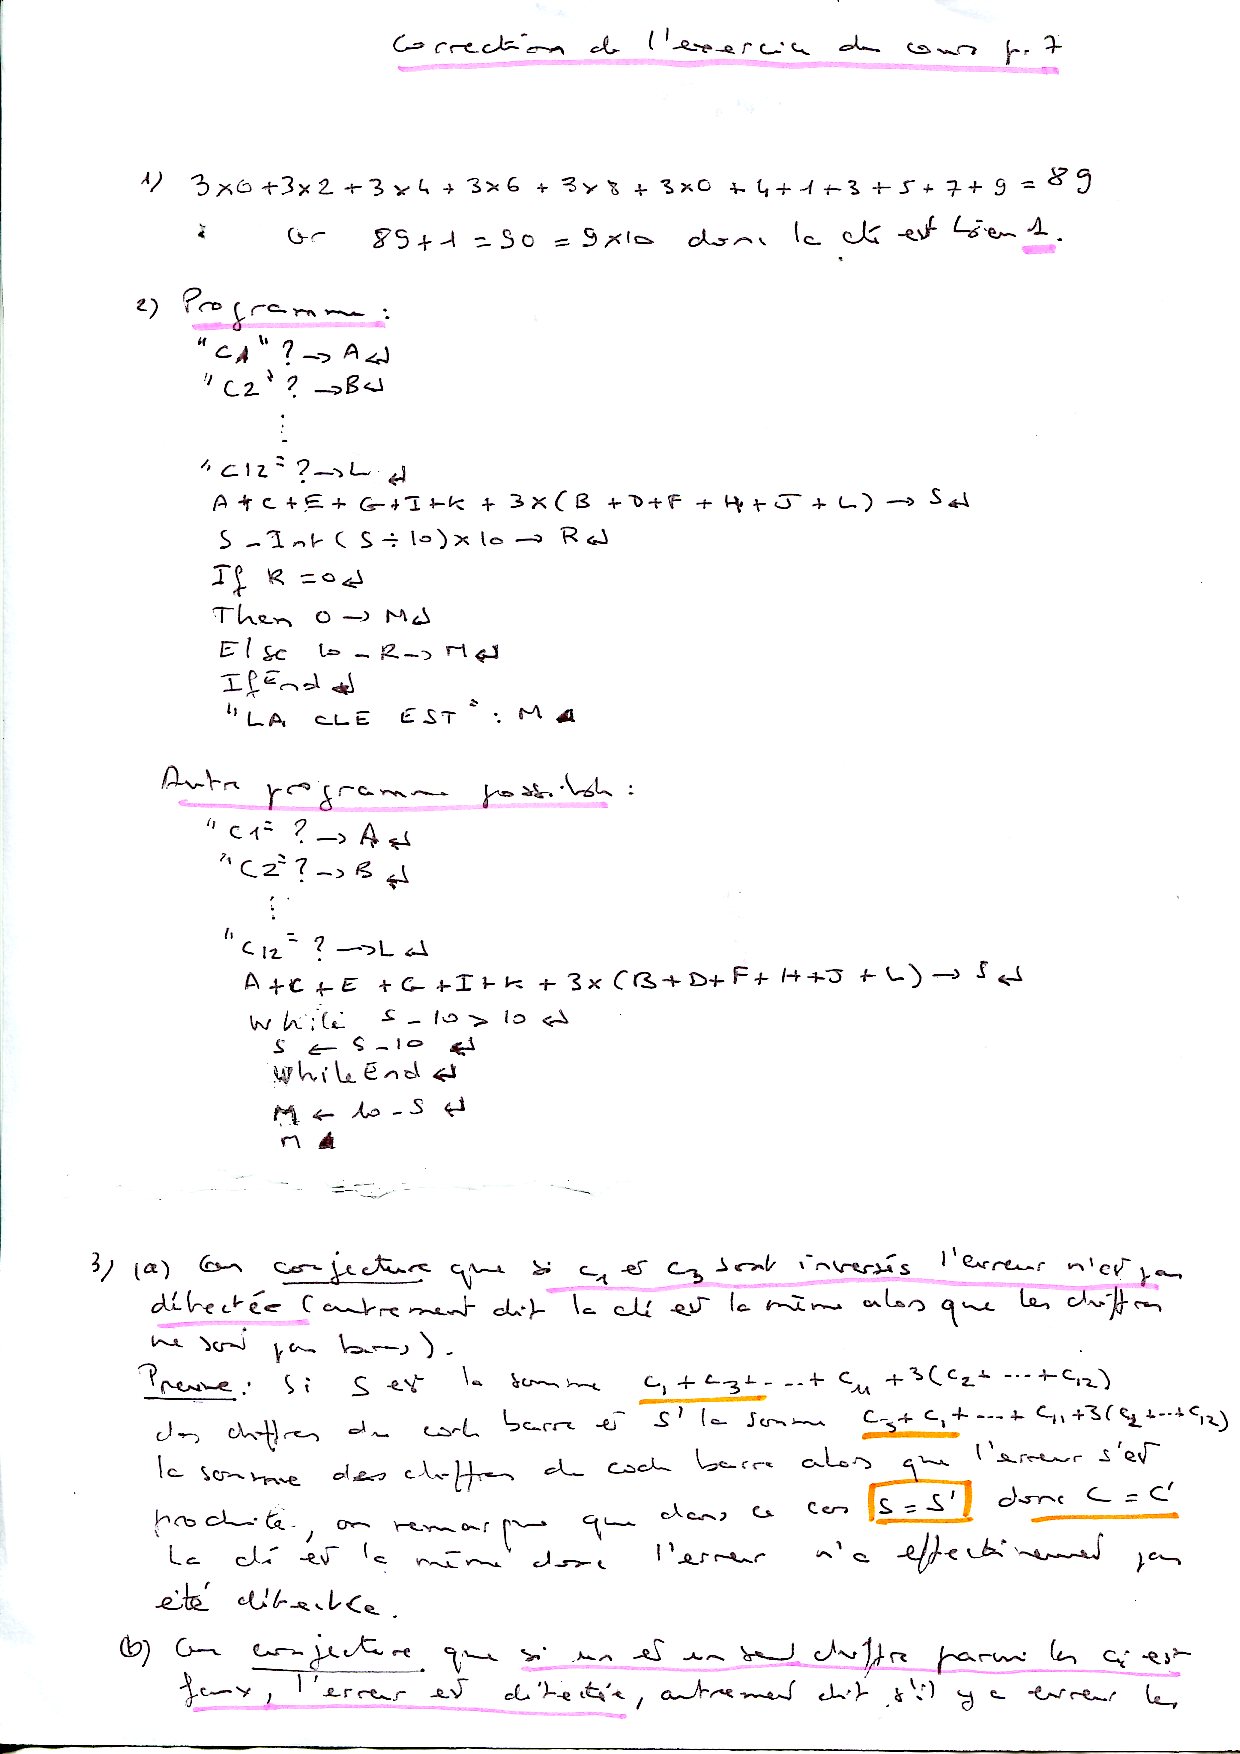 Correction de l'exercice du cours p. 7
1) 3×0+3×2+3×4+3×6+3×8+3×0+4+1+3+5+7+9=89
Or 89+1=90=9×10 donc la clé est bien 1.
2) Programme :
"C1"?→A↵
"C2"?→B↵
⋮
"C12"?→L↵
A+C+E+G+I+K+3×(B+D+F+H+J+L)→S↵
S-Int(S÷10)×10→R↵
If R=0↵
Then 0→M↵
Else 10-R→M↵
IfEnd↵
"LA CLE EST":M◢
Autre programme possible :
"C1"?→A↵
"C2"?→B↵
⋮
"C12"?→L↵
A+C+E+G+I+K+3×(B+D+F+H+J+L)→S↵
While S-10>10↵
S←S-10↵
WhileEnd↵
M←10-S↵
M◢
3) (a) On conjecture que si c1 et c3 sont inversés l'erreur n'est pas
détectée (autrement dit la clé est la même alors que les chiffres
ne sont pas bons).
Preuve : Si S est la somme c1+c3+...+c11+3(c2+...+c12)
des chiffres du code barre et S' la somme c3+c1+...+c11+3(c2+...+c12)
la somme des chiffres du code barre alors que l'erreur s'est
produite, on remarque que dans ce cas S=S' donc C=C'
La clé est la même donc l'erreur n'a effectivement pas
été détectée.
(b) On conjecture que si un et un seul chiffre parmi les ci est
faux, l'erreur est détectée, autrement dit s'il y a erreur les